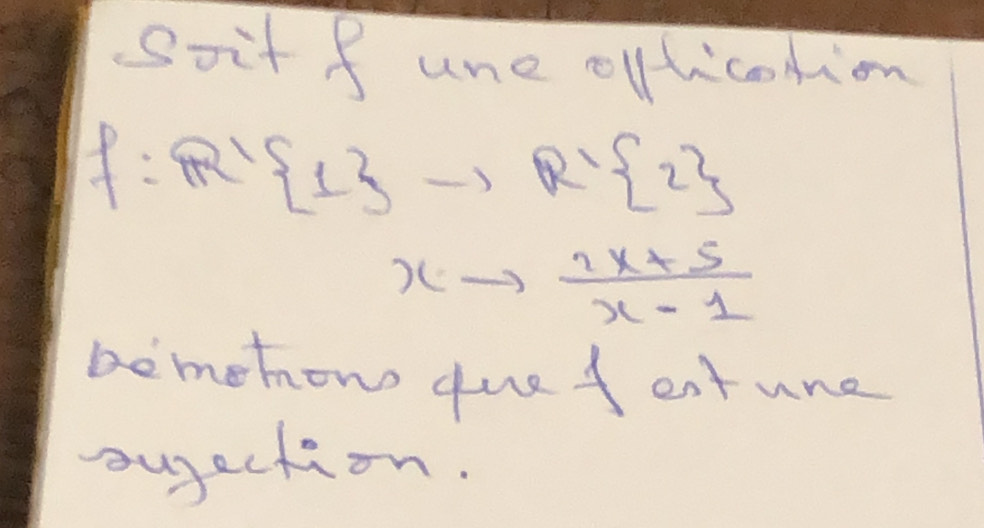 Soit f une application
f: ℝ\{1} → ℝ\{2}
x → (2x+5)/(x-1)
Démotrons que f est une
sujection.